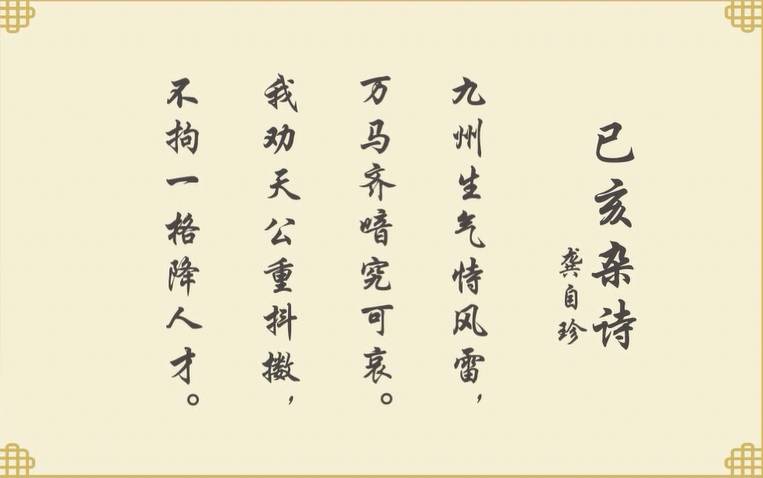 己亥杂诗
龚自珍
九州生气恃风雷，
万马齐喑究可哀。
我劝天公重抖擞，
不拘一格降人才。